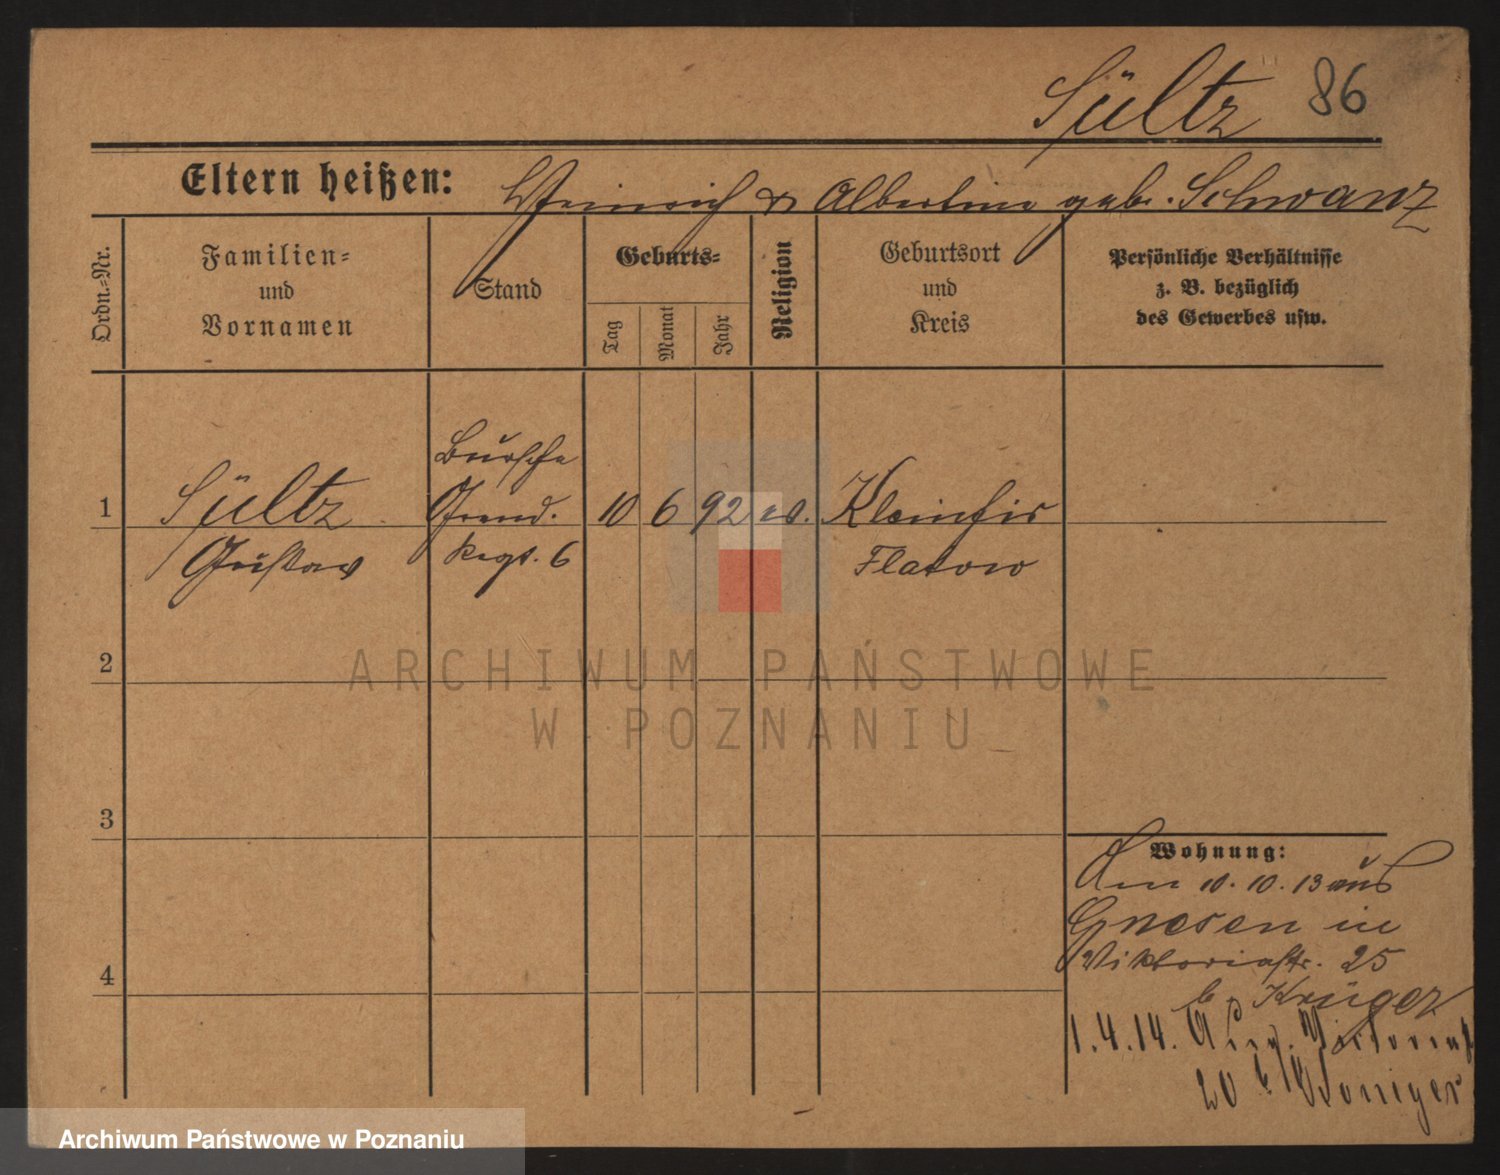 Sültz 86
Eltern heißen: Heinrich & Albertine geb. Schwanz
Ordn.-Nr.
Familien-
und
Vornamen
Stand
Geburts-
Tag
Monat
Jahr
Religion
Geburtsort
und
Kreis
Persönliche Verhältnisse
z. B. bezüglich
des Gewerbes usw.
Bursche
1 Sültz Gren. 10 6 92 ev.
Gustav Regt. 6 Flatow
2
ARCHIWUM PAŃSTWOWE
W POZNANIU
3
Wohnung:
Am 10. 10. 13 aus
Gnesen in
Viktoriastr. 25
b. Krüger
4
1.4.14.
20 b/
Archiwum Państwowe w Poznaniu